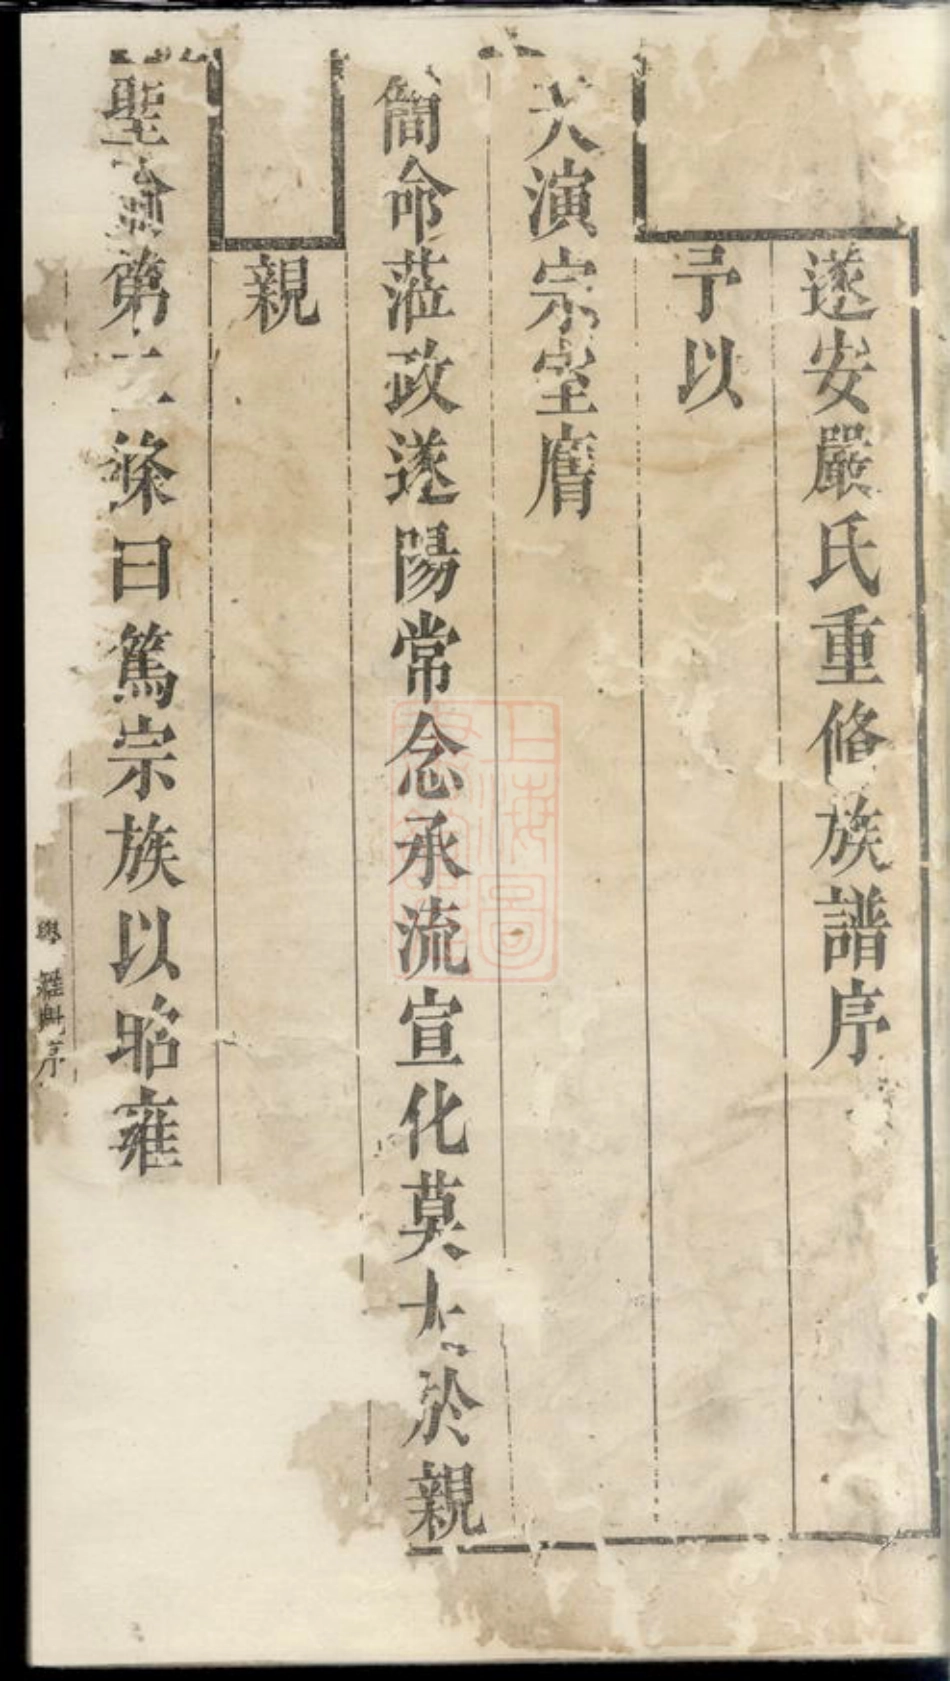 遂安嚴氏重修族譜序
予以
天演宗室膺
簡命蒞政遂陽常念承流宣化莫大於親
親
聖諭第二條曰篤宗族以昭雍
序
上海圖